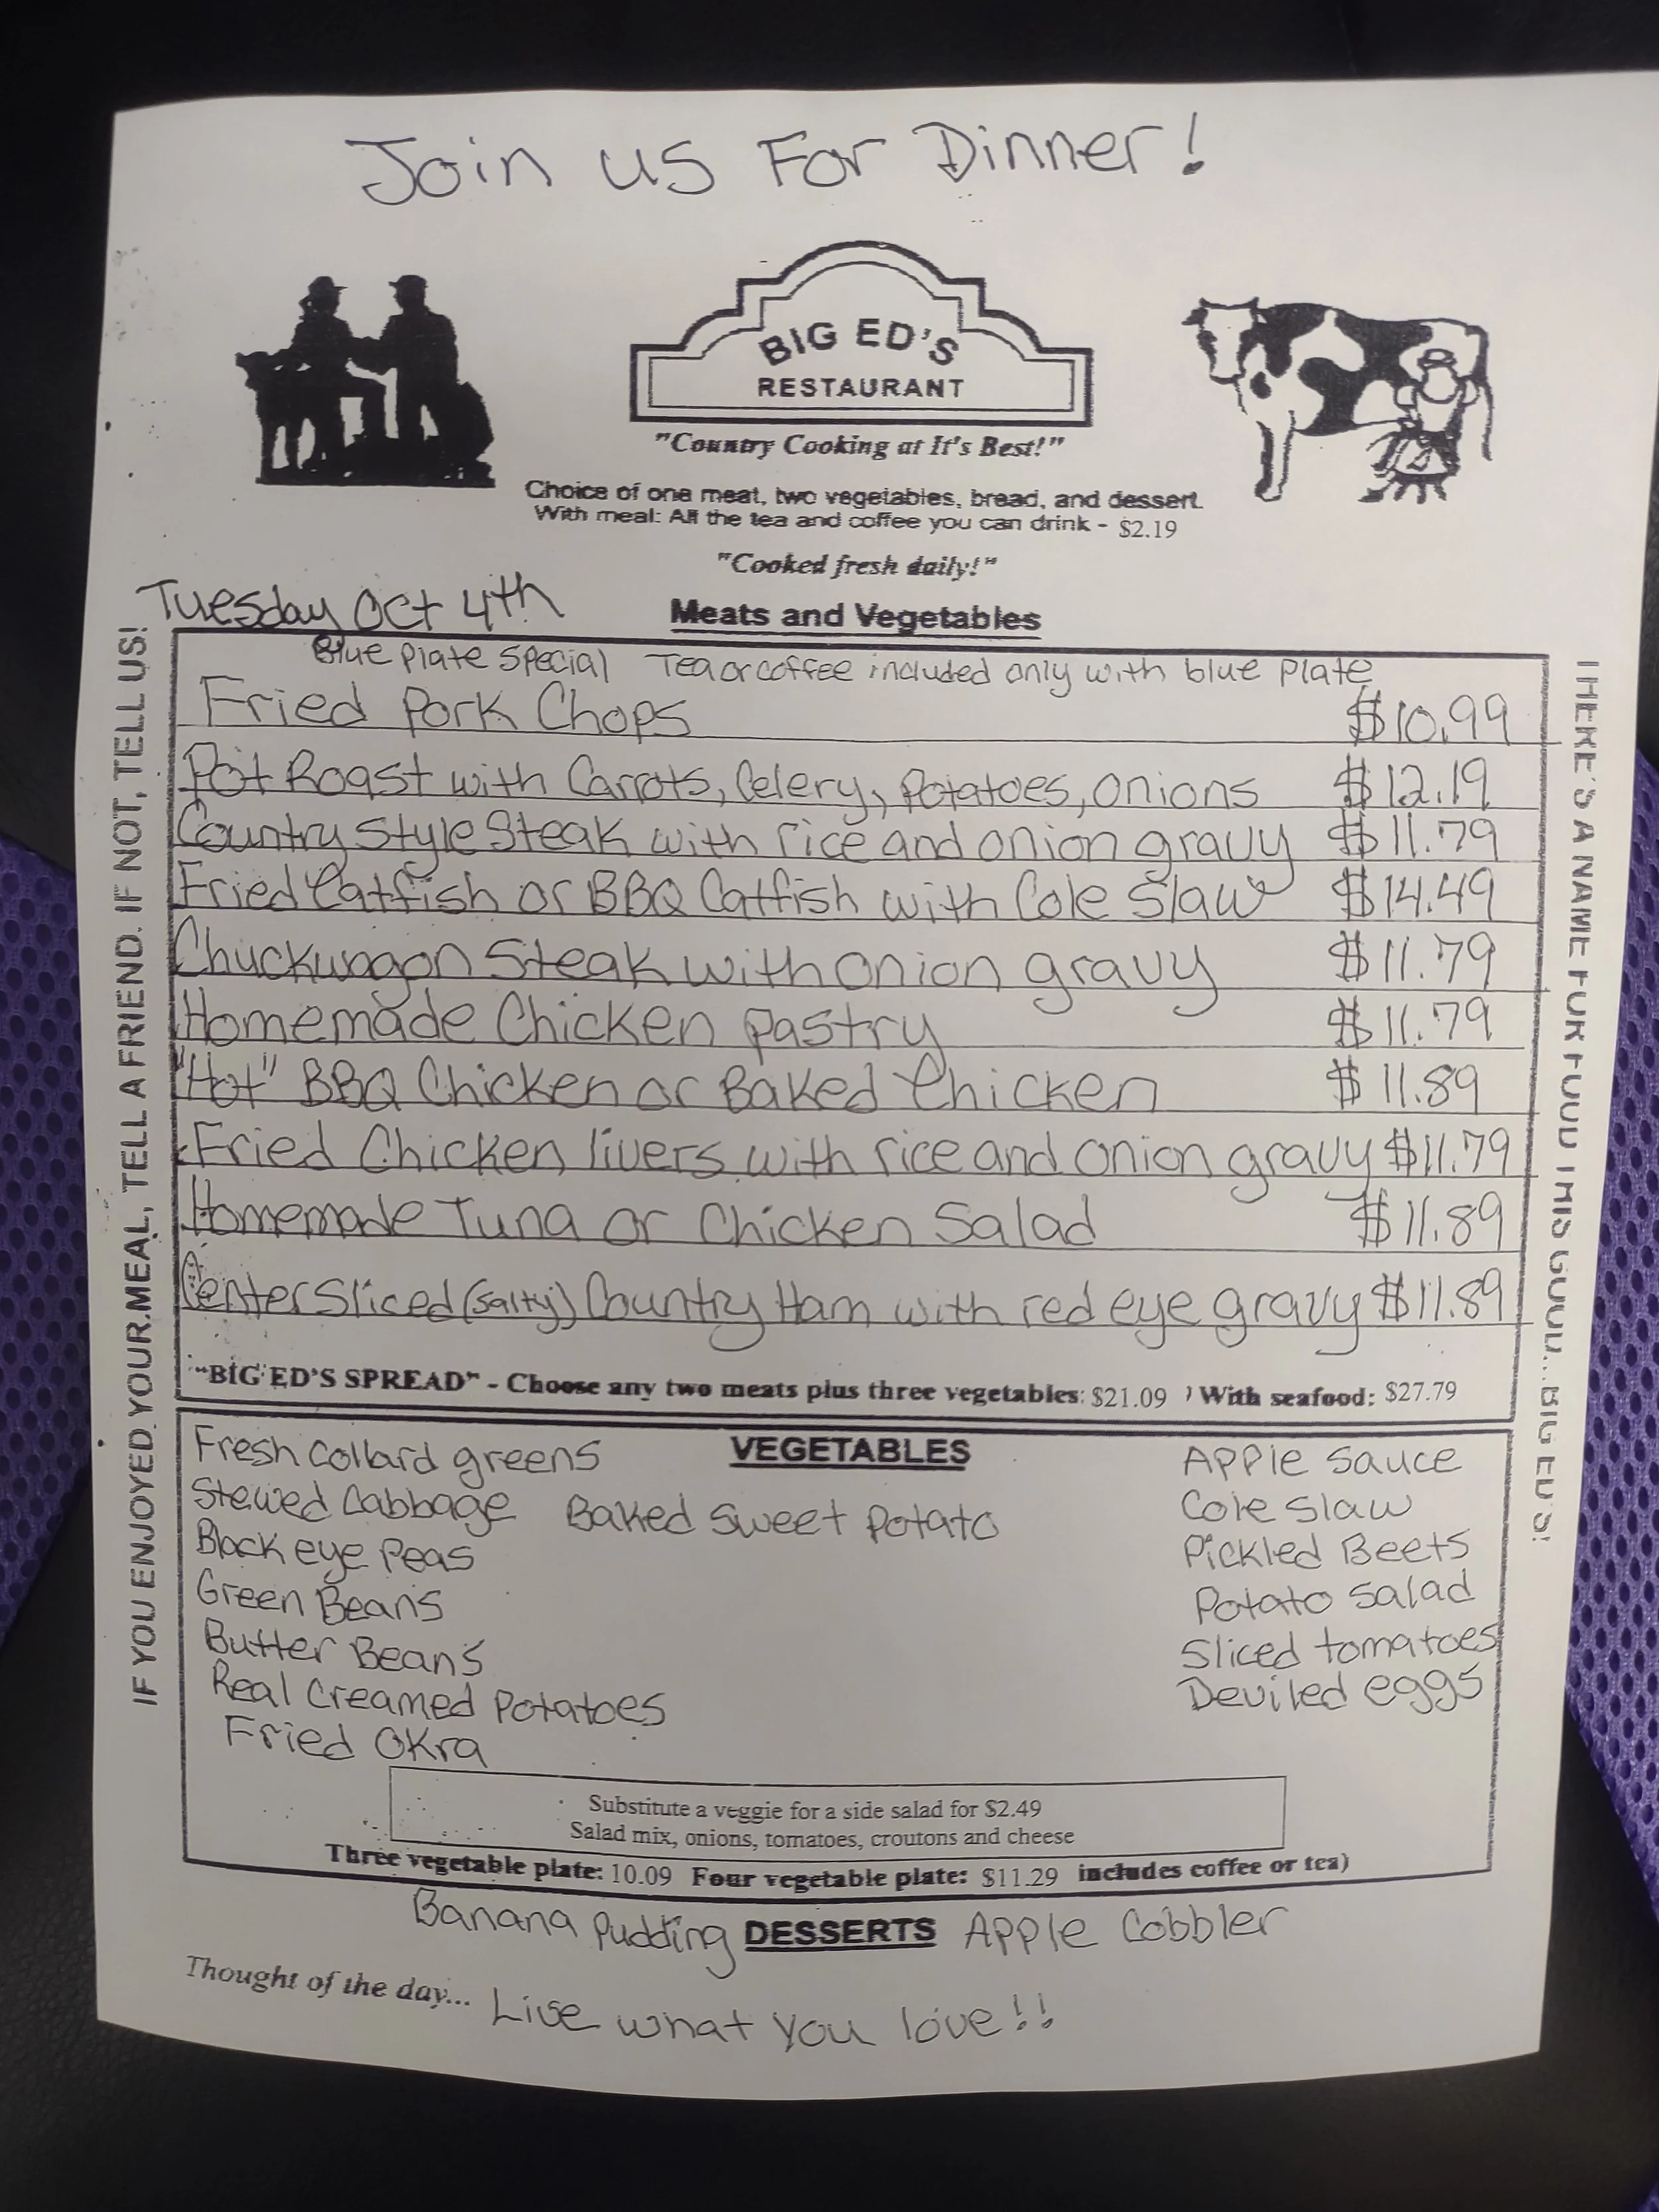 Join us For Dinner!
BIG ED'S
RESTAURANT
"Country Cooking at It's Best!"
Choice of one meat, two vegetables, bread, and dessert.
With meal: All the tea and coffee you can drink - $2.19
"Cooked fresh daily!"
Tuesday Oct 4th
Meats and Vegetables
Blue Plate Special Tea or coffee included only with blue plate
Fried Pork Chops $10.99
Pot Roast with Carrots, Celery, Potatoes, onions $12.19
Country Style Steak with rice and onion gravy $11.79
Fried Catfish or BBQ Catfish with Cole Slaw $14.49
Chuckwagon Steak with onion gravy $11.79
Homemade Chicken pastry $11.79
"Hot" BBQ Chicken or Baked Chicken $11.89
Fried Chicken livers with rice and onion gravy $11.79
Homemade Tuna or Chicken Salad $11.89
Center Sliced (salty) Country Ham with red eye gravy $11.89
"BIG ED'S SPREAD" - Choose any two meats plus three vegetables: $21.09 ) With seafood: $27.79
IF YOU ENJOYED YOUR MEAL, TELL A FRIEND. IF NOT, TELL US!
THERE'S A NAME FOR FOOD THIS GOOD...BIG ED'S!
VEGETABLES
Fresh Collard greens
Stewed Cabbage
Black eye Peas
Green Beans
Butter Beans
Real Creamed Potatoes
Fried Okra
Baked Sweet Potato
Apple Sauce
Cole Slaw
Pickled Beets
Potato Salad
Sliced tomatoes
Deviled eggs
Substitute a veggie for a side salad for $2.49
Salad mix, onions, tomatoes, croutons and cheese
Three vegetable plate: 10.09 Four vegetable plate: $11.29 includes coffee or tea)
Banana Pudding DESSERTS Apple Cobbler
Thought of the day... Live what you love!!